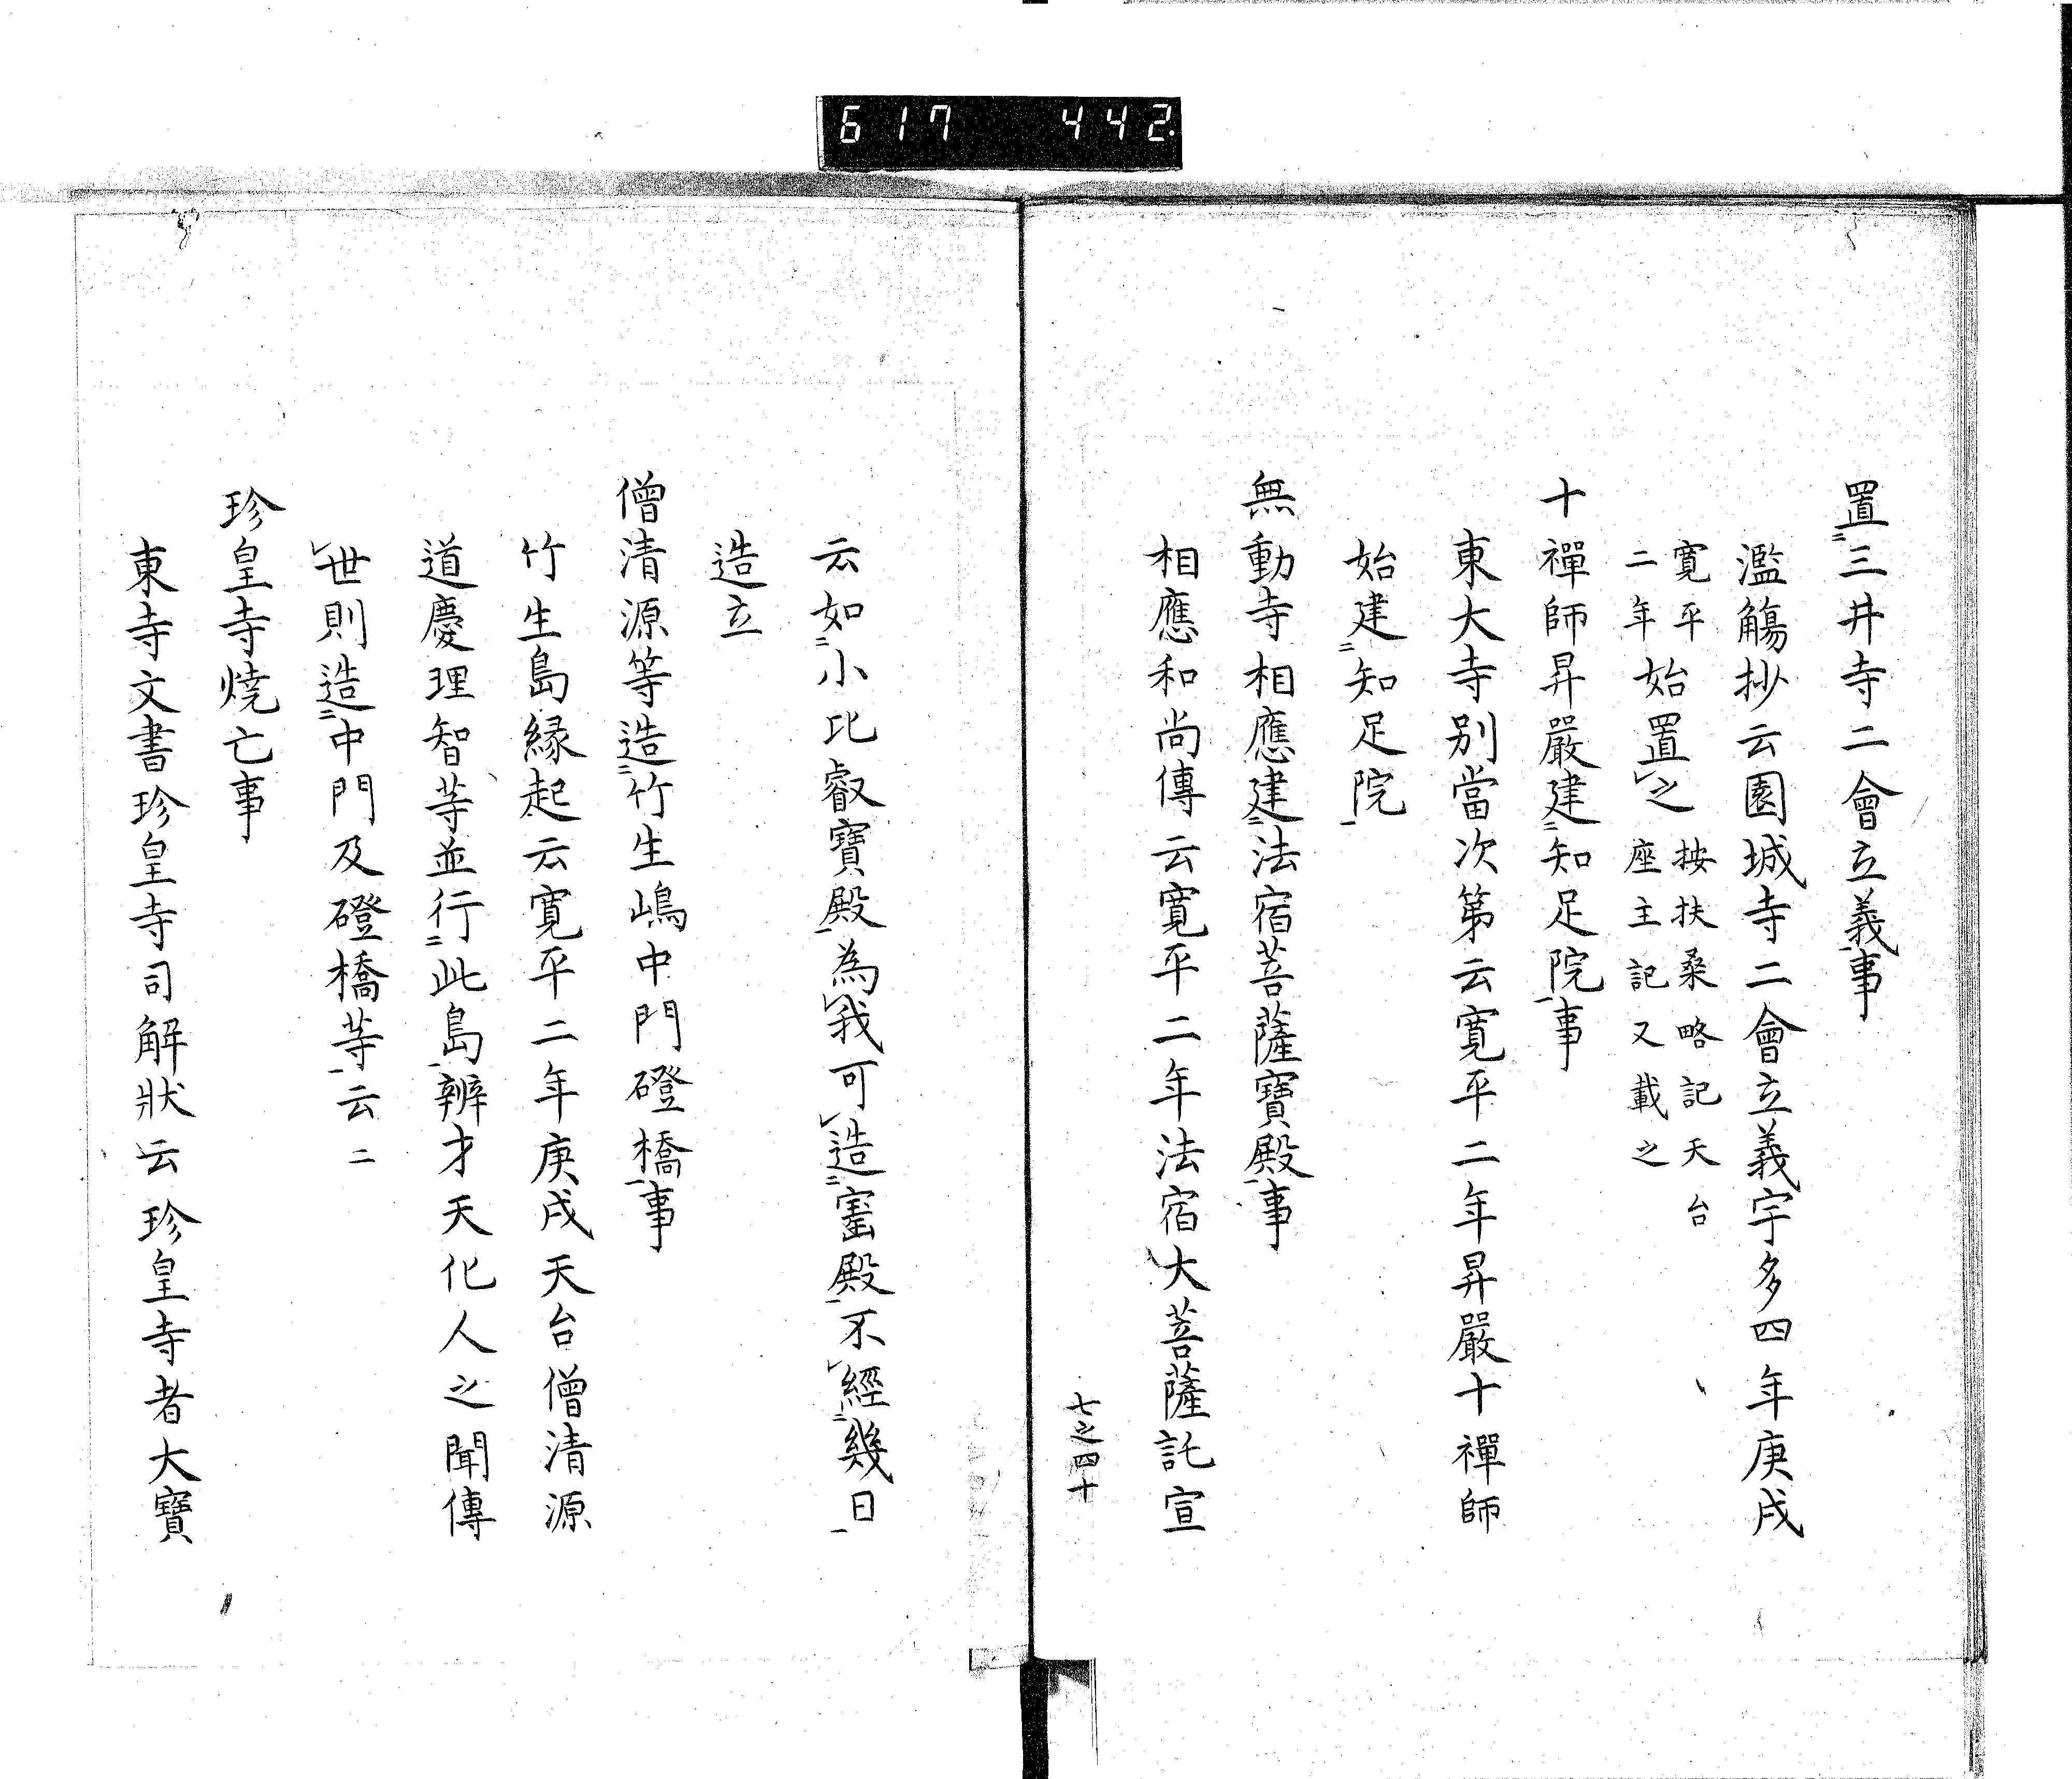 617 442
置二三井寺二會立義一事
濫觴抄云園城寺二會立義宇多四年庚戌
寛平二年始置レ之 按扶桑略記天台座主記又載之
十禪師昇嚴建二知足院一事
東大寺別當次第云寛平二年昇嚴十禪師
始建二知足院一
無動寺相應建二法宿菩薩寶殿一事
相應和尚傳云寛平二年法宿大菩薩託宣
七之四十
云如二小比叡寶殿一為レ我可レ造二寳殿一不レ經二幾日一
造立
僧清源等造二竹生嶋中門磴橋一事
竹生島縁起云寛平二年庚戌天台僧清源
道慶理智等並行二此島一辨才天化人之聞傳
レ世則造二中門及磴橋等一云〻
珍皇寺燒亡事
東寺文書珍皇寺司解狀云珍皇寺者大寶